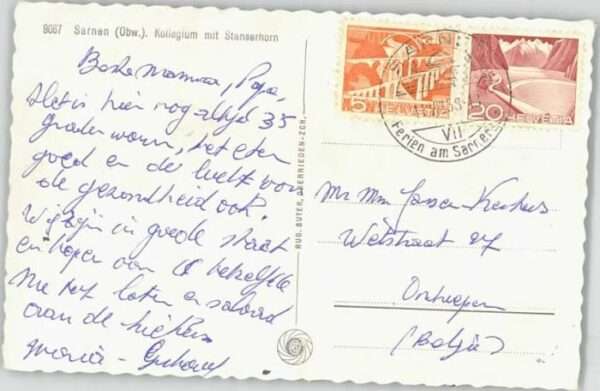 9087 Sarnen (Obw.). Kollegium mit Stanserhorn
Beste mamma, Papa,
Het is hier nog altijd 35
graden warm, het eten
goed en de lucht voor
de gezondheid ook.
Wij zijn in goede staat
en hopen van U hetzelfde
en saluad
aan de
maria -
RUD. SUTER, OBERRIEDEN-ZCH.
5 HELVETIA
20 HELVETIA
SARNEN
VII
Ferien am Sarnersee
Mr Mm Jansen
Wetstraat 27
Antwerpen
(België)